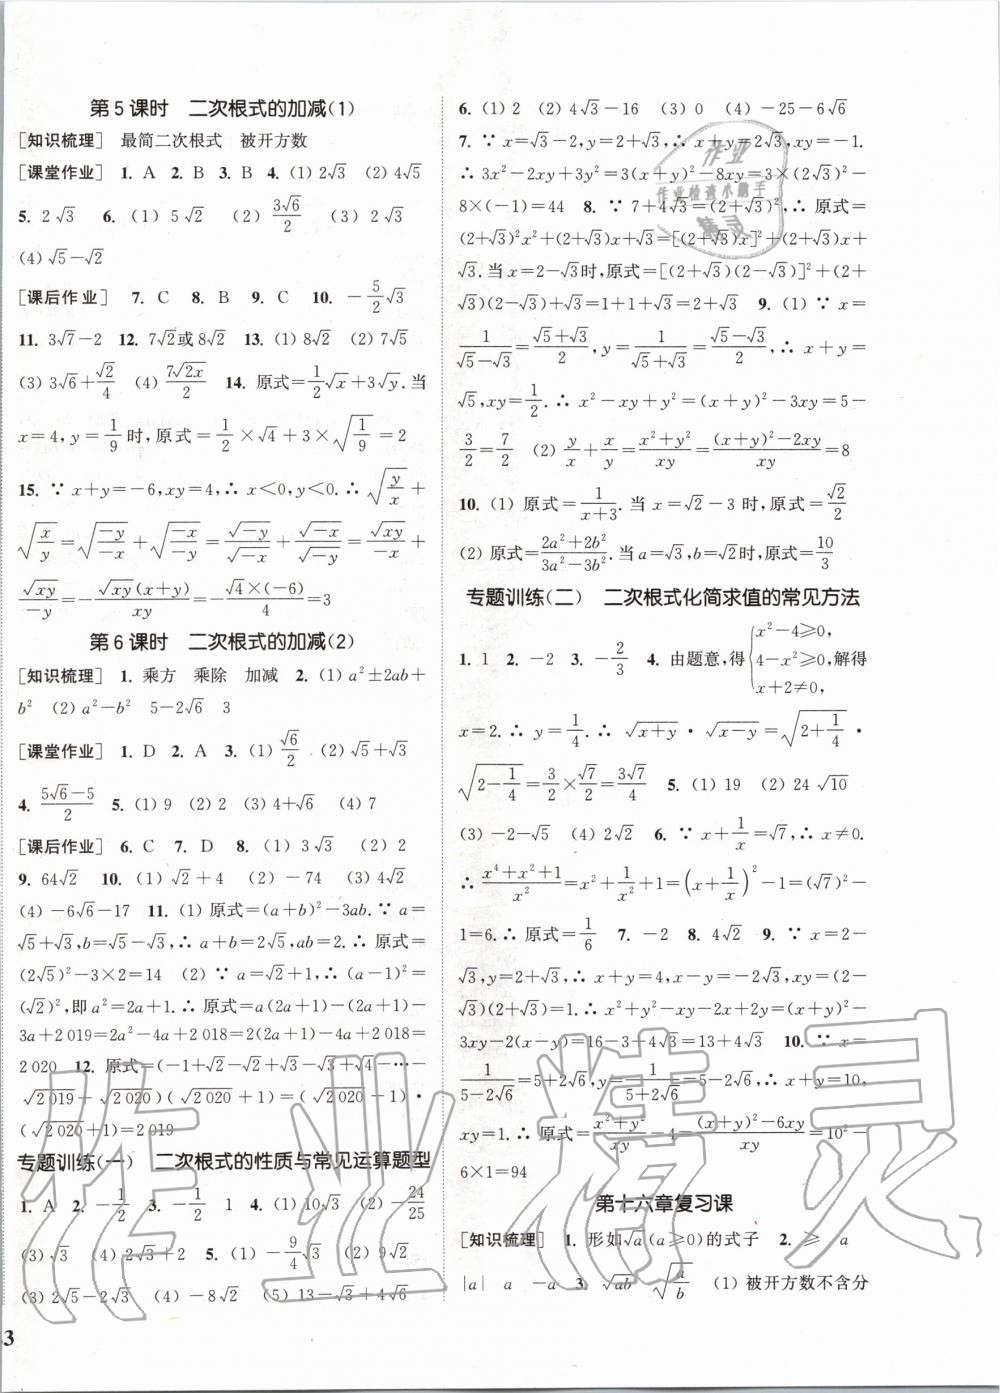 第5课时 二次根式的加减(1)
[知识梳理] 最简二次根式 被开方数
[课堂作业] 1. A 2. B 3. B 4. (1) 2√3 (2) 4√5
5. 2√3 6. (1) 5√2 (2) 3√6/2 (3) 2√3
(4) √5-√2
[课后作业] 7. C 8. B 9. C 10. -5/2√3
11. 3√7-2 12. 7√2或8√2 13. (1) 8√2 (2) 7√5
(3) 3√6+√2/4 (4) 7√2x/2 14. 原式=1/2√x+3√y.当
x=4,y=1/9时,原式=1/2×√4+3×√(1/9)=2
15. ∵ x+y=-6,xy=4,∴ x<0,y<0.∴ √(y/x)+
√(x/y)=√(-y/-x)+√(-x/-y)=√-y/√-x+√-x/√-y=√xy/-x+
√xy/-y=-√xy(x+y)/xy=-√4×(-6)/4=3
第6课时 二次根式的加减(2)
[知识梳理] 1. 乘方 乘除 加减 2. (1) a²±2ab+
b² (2) a²-b² 5-2√6 3
[课堂作业] 1. D 2. A 3. (1) √6/2 (2) √5+√3
4. 5√6-5/2 5. (1) 9 (2) 2 (3) 4+√6 (4) 7
[课后作业] 6. C 7. D 8. (1) 3√3 (2) 2
9. 64√2 10. (1) √2+4 (2) -74 (3) 4√2
(4) -6√6-17 11. (1) 原式=(a+b)²-3ab.∵ a=
√5+√3,b=√5-√3,∴ a+b=2√5,ab=2.∴ 原式=
(2√5)²-3×2=14 (2) ∵ a=√2+1,∴ (a-1)²=
(√2)²,即a²=2a+1.∴ 原式=a(2a+1)-(2a+1)-
3a+2 019=2a²-4a+2 018=2(2a+1)-4a+2 018=
2 020 12. 原式=(-1+√2-√2+√3-√3+√4-…-
√2 019+√2 020)(√2 020+1)=(√2 020-1)·
(√2 020+1)=2 019
专题训练(一) 二次根式的性质与常见运算题型
1. A 2. -1/2 3. -1/2 1 4. (1) 10√3 (2) -24/25
(3) √3 (4) 2√3+2 5. (1) -9/4√3 (2) 9√2
(3) 2√5-2√3 (4) -8√2 (5) 13-√3+4√6
3
6. (1) 2 (2) 4√3-16 (3) 0 (4) -25-6√6
7. ∵ x=√3-2,y=2+√3,∴ x+y=2√3,xy=-1.
∴ 3x²-2xy+3y²=3(x+y)²-8xy=3×(2√3)²-
8×(-1)=44 8. ∵ 7+4√3=(2+√3)²,∴ 原式=
(2+√3)²x²+(2+√3)x+√3=[(2+√3)x]²+(2+√3)x+
√3.当x=2-√3时,原式=[(2+√3)(2-√3)]²+(2+
√3)(2-√3)+√3=1+1+√3=2+√3 9. (1) ∵ x=
1/√5-√3=√5+√3/2,y=1/√5+√3=√5-√3/2,∴ x+y=
√5,xy=1/2.∴ x²-xy+y²=(x+y)²-3xy=5-
3/2=7/2 (2) y/x+x/y=x²+y²/xy=(x+y)²-2xy/xy=8
10. (1) 原式=1/x+3.当x=√2-3时,原式=√2/2
(2) 原式=2a²+2b²/3a²-3b².当a=√3,b=√2时,原式=10/3
专题训练(二) 二次根式化简求值的常见方法
1. 1 2. -2 3. -2/3 4. 由题意,得{x²-4≥0, 4-x²≥0, x+2≠0,解得
x=2.∴ y=1/4.∴ √x+y·√x-y=√(2+1/4)·
√(2-1/4)=3/2×√7/2=3√7/4 5. (1) 19 (2) 24√10
(3) -2-√5 (4) 2√2 6. ∵ x+1/x=√7,∴ x≠0.
∴ x⁴+x²+1/x²=x²+1/x²+1=(x+1/x)²-1=(√7)²-
1=6.∴ 原式=1/6 7. -2 8. 4√2 9. ∵ x=2-
√3,y=2+√3,∴ x+y=4,x-y=-2√3,xy=(2-
√3)(2+√3)=1.∴ x²+y²-xy-2x+2y=(x+y)²-
3xy-2(x-y)=16-3+4√3=13+4√3 10. ∵ x=
1/5-2√6=5+2√6,y=1/5+2√6=5-2√6,∴ x+y=10,
xy=1.∴ 原式=x²+y²/xy-4=(x+y)²-6xy/xy=10²-
6×1=94
第十六章复习课
[知识梳理] 1. 形如√a(a≥0)的式子 2. ≥ a
|a| a -a 3. √ab √(a/b) (1) 被开方数不含分
作业
作业检查小帮手
精灵
作业精灵